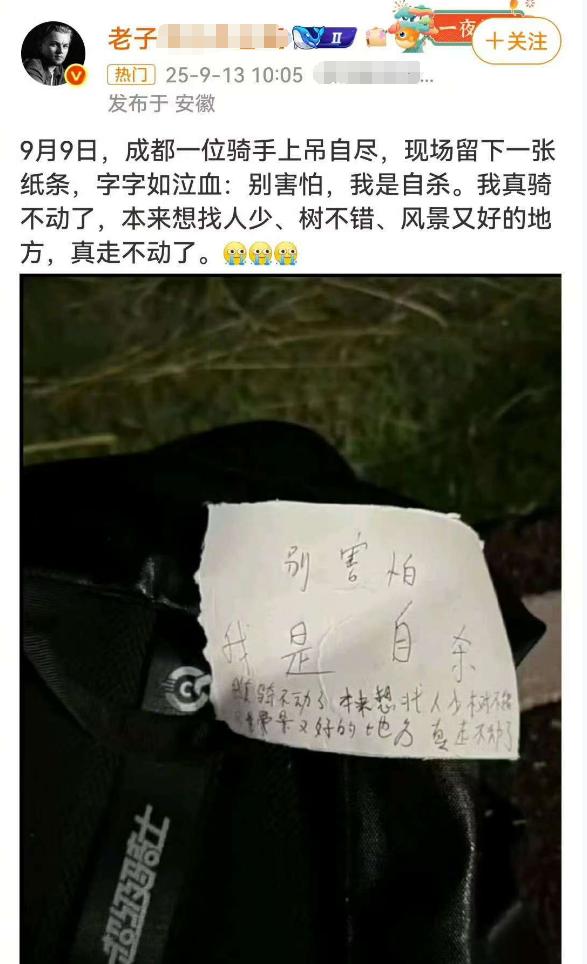 老子
II
一夜
+关注
热门 25-9-13 10:05 ...
发布于 安徽
9月9日，成都一位骑手上吊自尽，现场留下一张
纸条，字字如泣血：别害怕，我是自杀。我真骑
不动了，本来想找人少、树不错、风景又好的地
方，真走不动了。😭😭😭
别害怕
我是自杀
我真骑不动了 本来想找人少 树不错
风景又好的地方 真走不动了
超级骑士